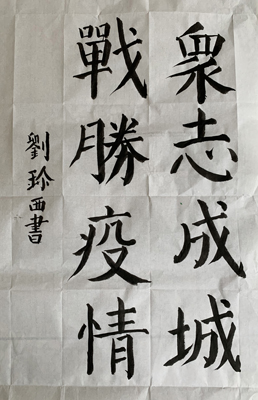 衆志成城
戰勝疫情
劉珍西書